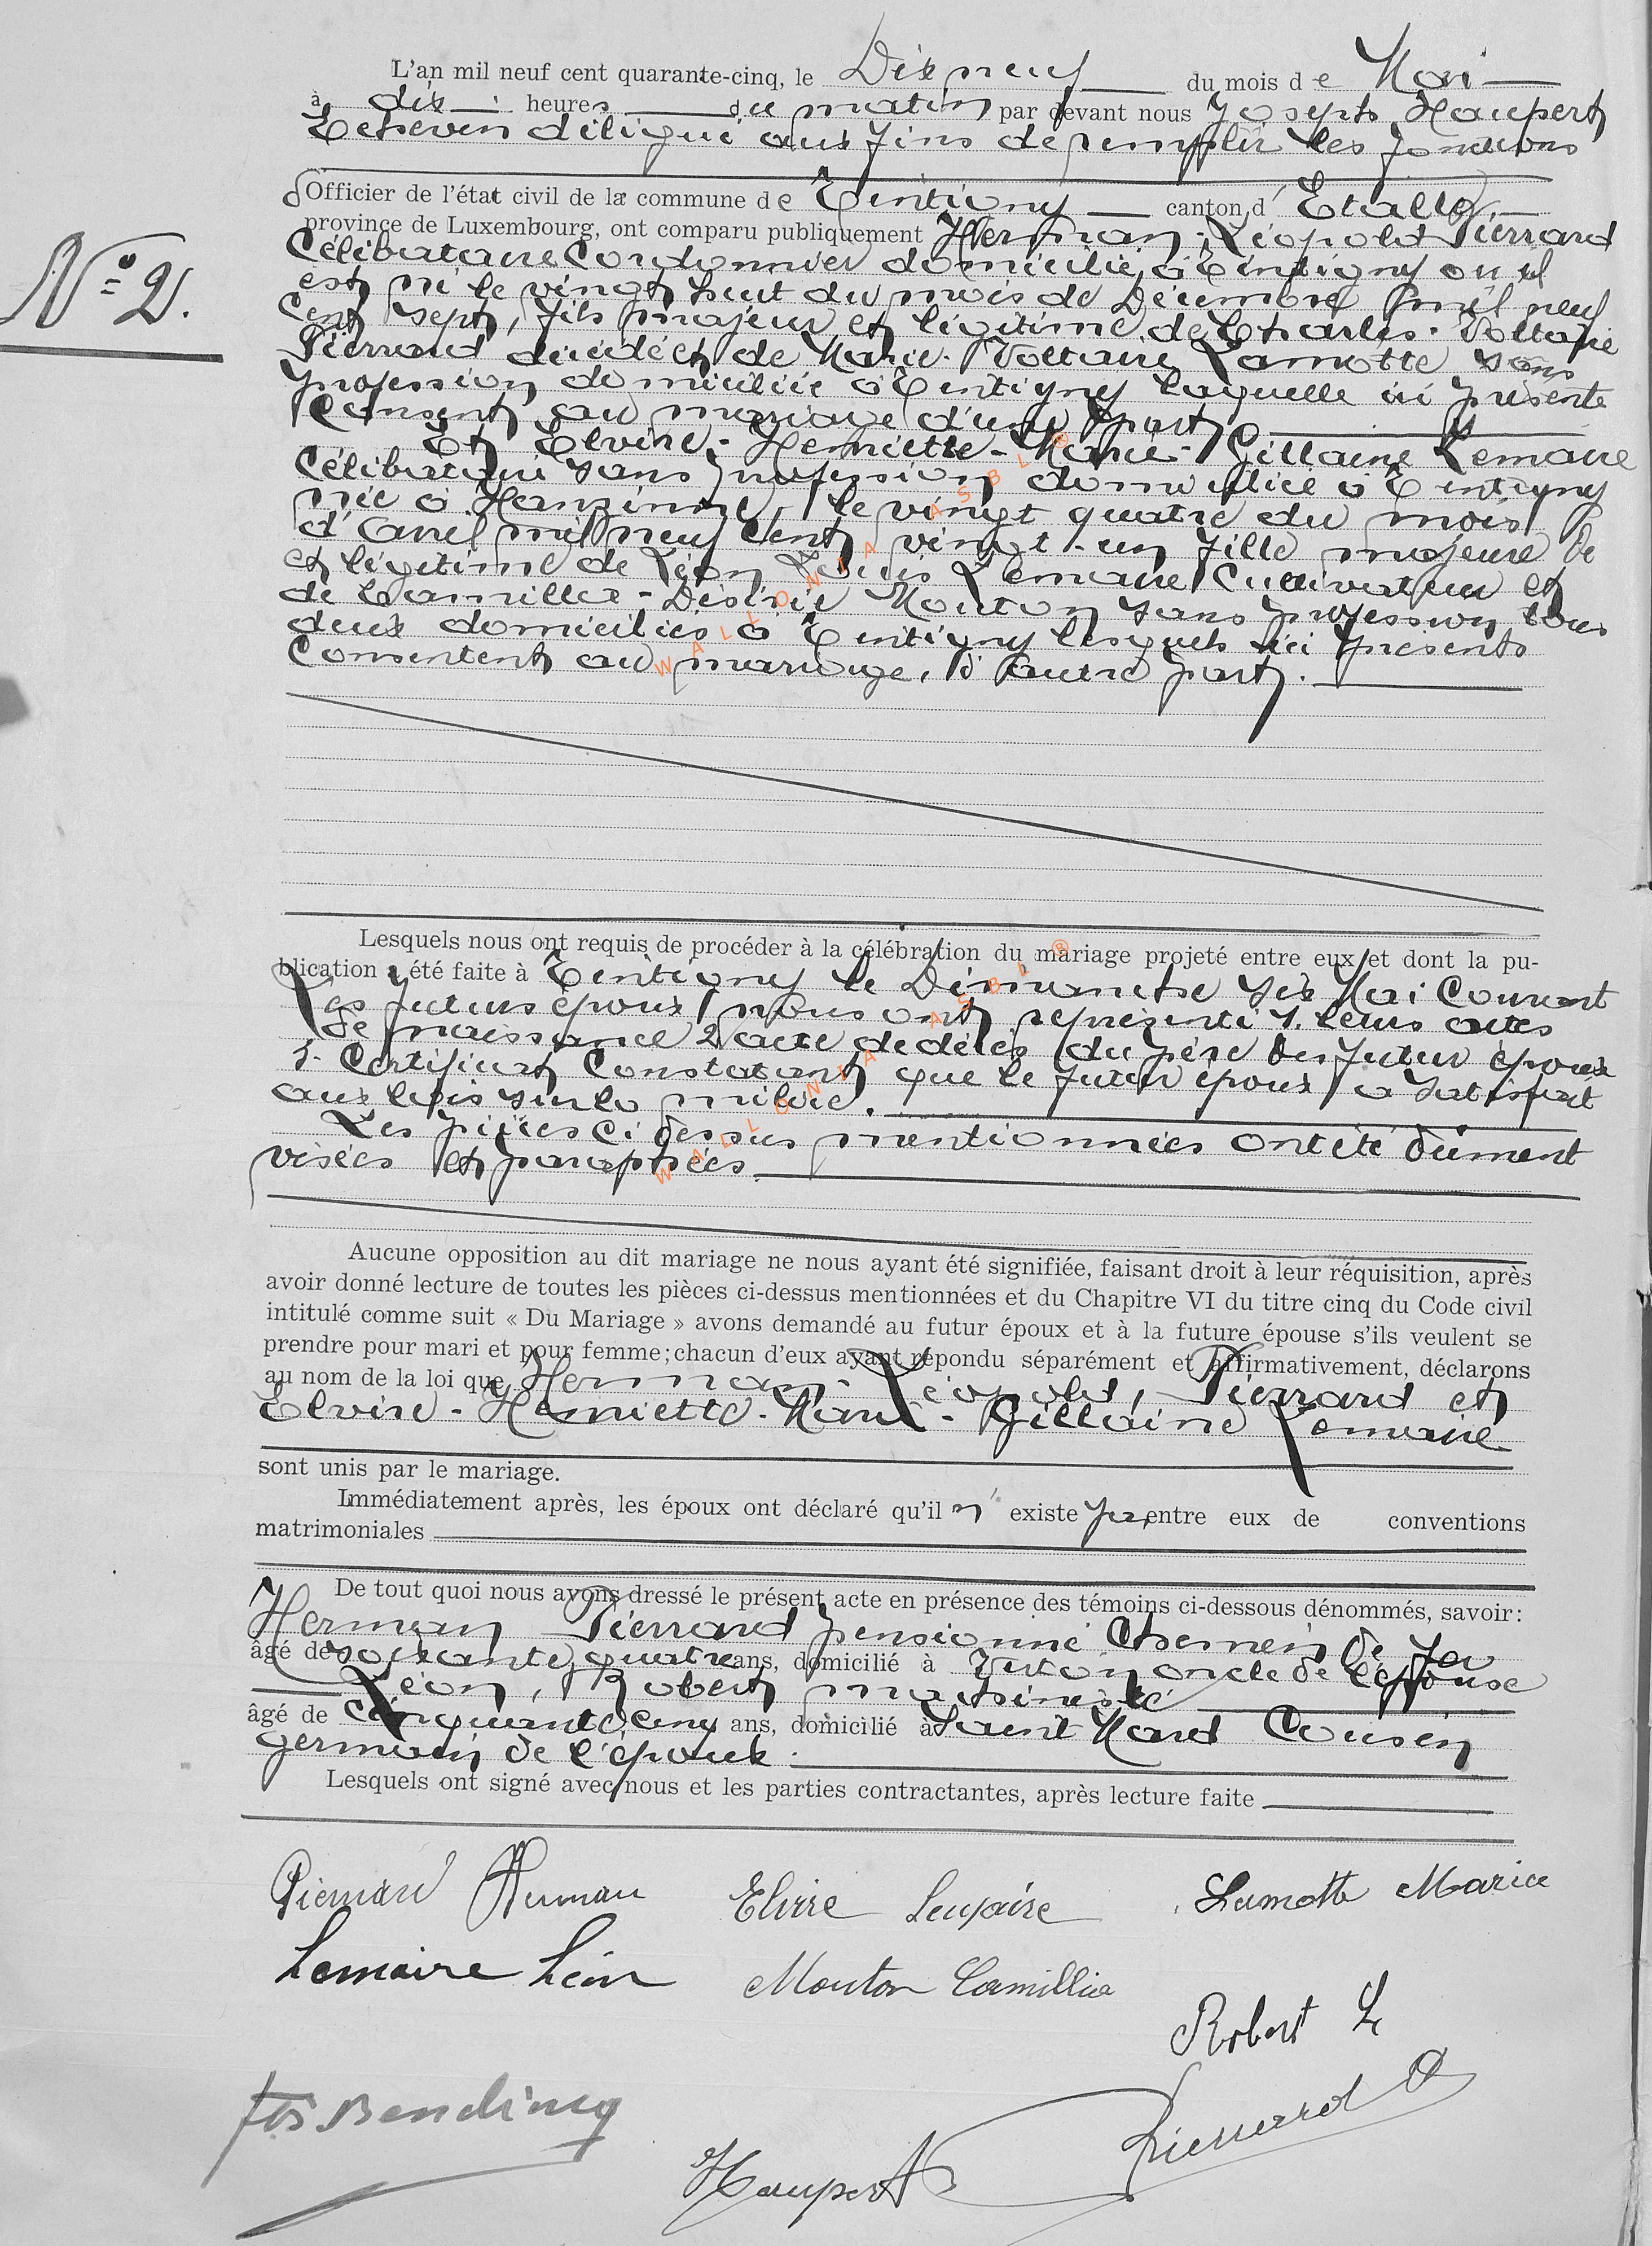 L'an mil neuf cent quarante-cinq, le Dix neuf du mois de Mai
à dix heures du matin par devant nous Joseph Haupert
Echevin délégué aux fins de remplir les fonctions
d'Officier de l'état civil de la commune de Tintigny canton d'Etalle,
province de Luxembourg, ont comparu publiquement Herman-Léopold Pierrard
Célibataire Cordonnier domicilié à Tintigny où il
est né le vingt huit du mois de Décembre mil neuf
Cent sept, fils majeur et légitime de Charles-Voltaire
Pierrard décédé et de Marie-Voltaire Lamotte sans
profession domiciliée à Tintigny laquelle ici présente
Consent au mariage d'une part
N° 2.
Et Elvire-Henriette-Marie-Gillaine Lemaire
Célibataire sans profession domiciliée à Tintigny
née à Hanzinne, le vingt quatre du mois
d'avril mil neuf Cent vingt-un fille majeure de
et légitime de Léon Louis Lemaire Cultivateur et
de Camillia-Désirée Mouton sans profession tous
deux domiciliés à Tintigny lesquels ici présents
Consentent au mariage, d'autre part.
Lesquels nous ont requis de procéder à la célébration du mariage projeté entre eux et dont la pu-
blication a été faite à Tintigny le Dimanche six Mai Courant
Les futurs époux nous ont représenté 1. leurs actes
de naissance 2 acte de décès du père du futur époux
3. Certificat Constatant que le futur époux a satisfait
aux lois sur la milice.
Les pièces ci dessus mentionnées ont été dûment
visées et paraphées
Aucune opposition au dit mariage ne nous ayant été signifiée, faisant droit à leur réquisition, après
avoir donné lecture de toutes les pièces ci-dessus mentionnées et du Chapitre VI du titre cinq du Code civil
intitulé comme suit « Du Mariage » avons demandé au futur époux et à la future épouse s'ils veulent se
prendre pour mari et pour femme; chacun d'eux ayant répondu séparément et affirmativement, déclarons
au nom de la loi que Herman-Léopold, Pierrard et
Elvire-Henriette-Marie-Gillaine Lemaire
sont unis par le mariage.
Immédiatement après, les époux ont déclaré qu'il n'existe pas entre eux de conventions
matrimoniales
De tout quoi nous avons dressé le présent acte en présence des témoins ci-dessous dénommés, savoir:
Herman Pierrard pensionné Chemin de fer
âgé de soixante quatre ans, domicilié à Virton oncle de l'épouse
Léon, Robert machiniste
âgé de Cinquante cinq ans, domicilié à Saint Mard Cousin
germain de l'époux.
Lesquels ont signé avec nous et les parties contractantes, après lecture faite
Pierrard Herman Elvire Lemaire Lamotte Maria
Lemaire Léon Mouton Camillia
Robert L
Bending
Haupert Pierrard
WALLONIA ASBL ®
WALLONIA ASBL ®